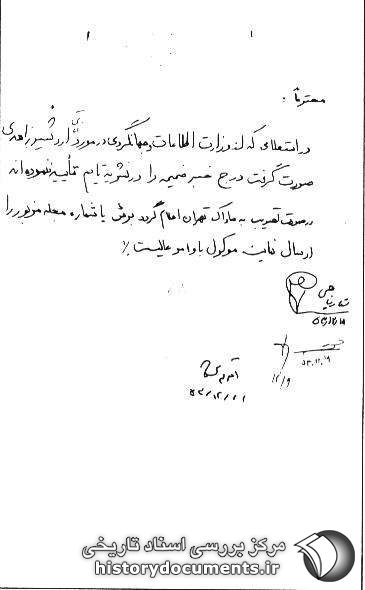 محترماً:
در استعلامی که از وزارت اطلاعات و جهانگردی در مورد آقای اردشیر زاهدی
صورت گرفت درج خبر ضمیمه را در نشریه تایم تأیید ننموده‌اند
در صورت تصویب به ساواک تهران اعلام گردد برش یا شماره مجله مزبور را
ارسال نمایند موکول باوامر عالیست٪
۵۳/۱۲/۱۸
۵۳،۱۲،۱۹
۱۲/۹
۵۳/۱۲/۲۱
مرکز بررسی اسناد تاریخی
historydocuments.ir